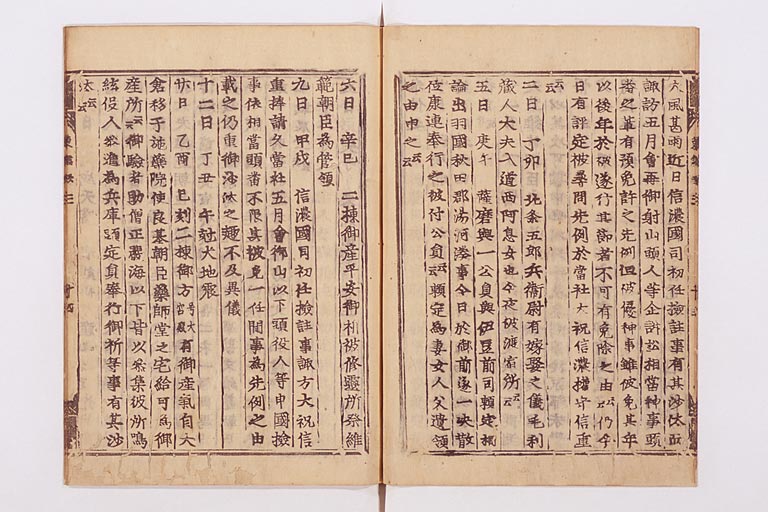 大風甚雨近日信濃國司初任撿註事有其沙汰而
諏訪五月會再御射山頭人等企訴訟相當神事頭
番之輩有預免許之先例但被優神事雖被免其年
以後年於被遂行其節者不可有免除之由云云仍今
日有評定被尋問先例於當社大祝信濃權守信重
云云
二日 丁卯 北条五郎兵衛尉有嫁娶之儀毛利
藏人大夫入道西阿息女也今夜被渡宿所云云
五日 庚午 薩摩與一公員與伊豆前司頼定相
論出羽國秋田郡湯河澤事今日於御前遂一决散
位康連奉行之被付公員云云頼定爲妻女人父遺領
之由申之云云
六日 辛巳 二棟御産平安御祈被修靈所祭維
範朝臣爲管領
九日 甲戌 信濃國司初任撿註事諏方大祝信
重捧請文當社五月會御山以下頭役人等申國撿
事依相當頭番不限其被免一任間事爲先例之由
載之仍重御沙汰之趣不及異儀
十二日 丁丑 午尅大地震
廿日 乙酉 巳刻二棟御方号大宮殿有御産氣自大
倉移于施藥院使良基朝臣藥師堂之宅給可爲御
産所云云御驗者助僧正嚴海以下皆以參集彼所鳴
絃役人參進爲兵庫頭定員奉行御祈等事有其沙
汰云云